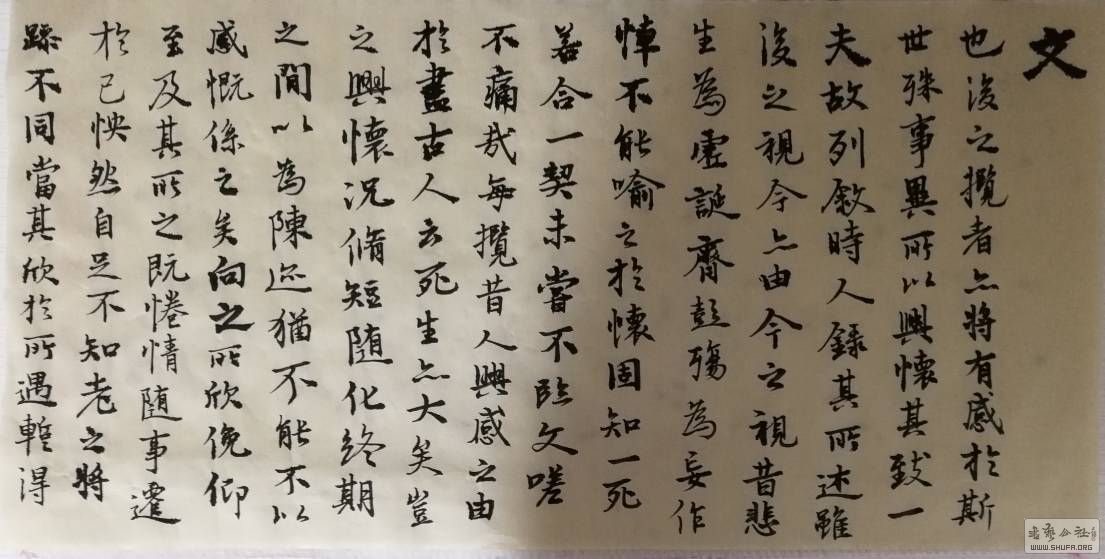 躁不同當其欣於所遇暫得
於己怏然自足不知老之將
至及其所之既惓情隨事遷
感慨係之矣向之所欣俛仰
之間以為陳迹猶不能不以
之興懷況脩短隨化終期
於盡古人云死生亦大矣豈
不痛哉每攬昔人興感之由
若合一契未嘗不臨文嗟
悼不能喻之於懷固知一死
生為虛誕齊彭殤為妄作
後之視今亦由今之視昔悲
夫故列敘時人錄其所述雖
世殊事異所以興懷其致一
也後之攬者亦將有感於斯
文
書藝公社
WWW.SHUFA.ORG